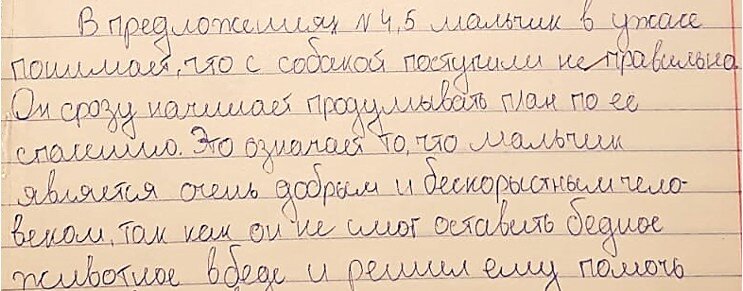 В предложениях N 4,5 мальчик в ужасе
понимает, что с собакой поступили не правильно.
Он срозу начинает продумывать план по ее
спасению. Это означает то, что мальчик
является очень добрым и бескорыстным чело-
веком, так как он не смог оставить бедное
животное в беде и решил ему помочь